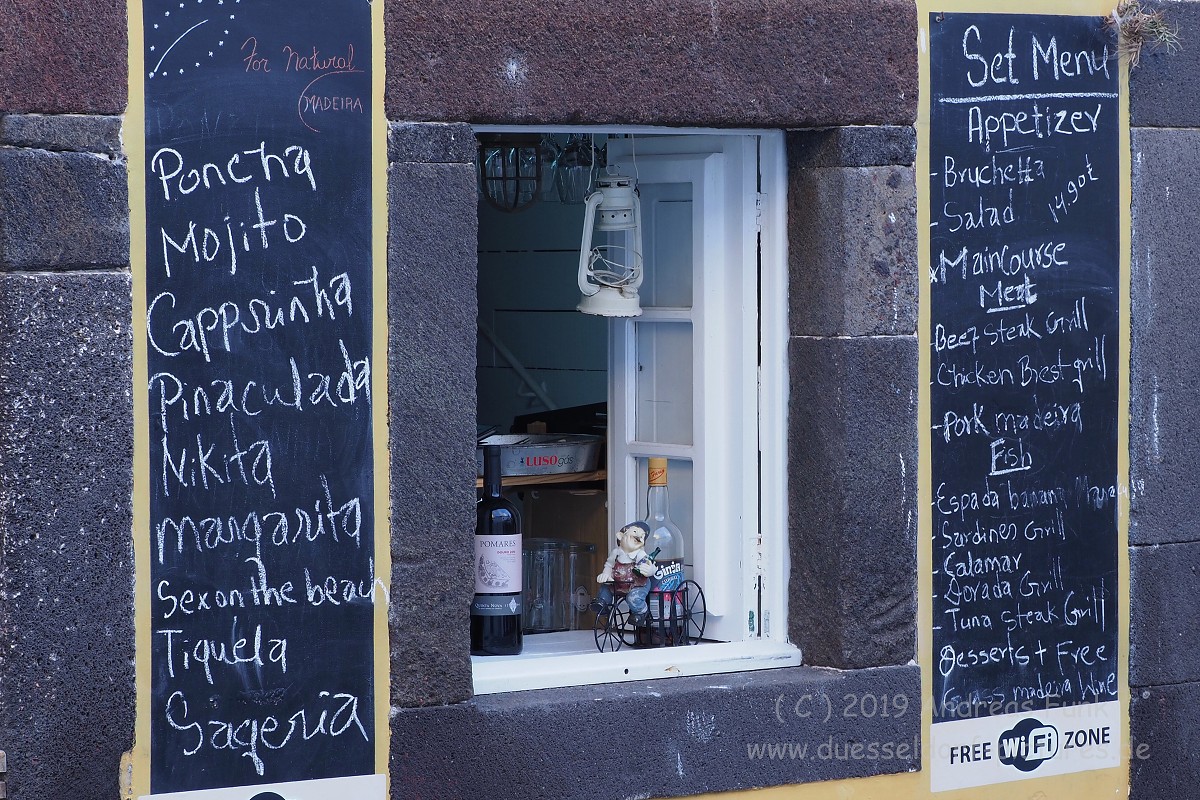 For Natural
MADEIRA
Poncha
Mojito
Cappsrinha
Pinaculada
Nikita
margarita
Sex on the beach
Tiquela
Sageria
LUSOgás
POMARES
QUINTA NOVA
Ginja
Set Menu
Appetizer
- Bruchetta
- Salad
14.90t
Main Course
Meat
- Beef steak Grill
- Chicken Brest grill
- Pork madeira
Fish
- Espada banana
- Sardines Grill
- Calamar
- Dorada Grill
- Tuna steak Grill
Desserts + Free
Glass madeira Wine
FREE WiFi ZONE
(C) 2019 Andreas Funk